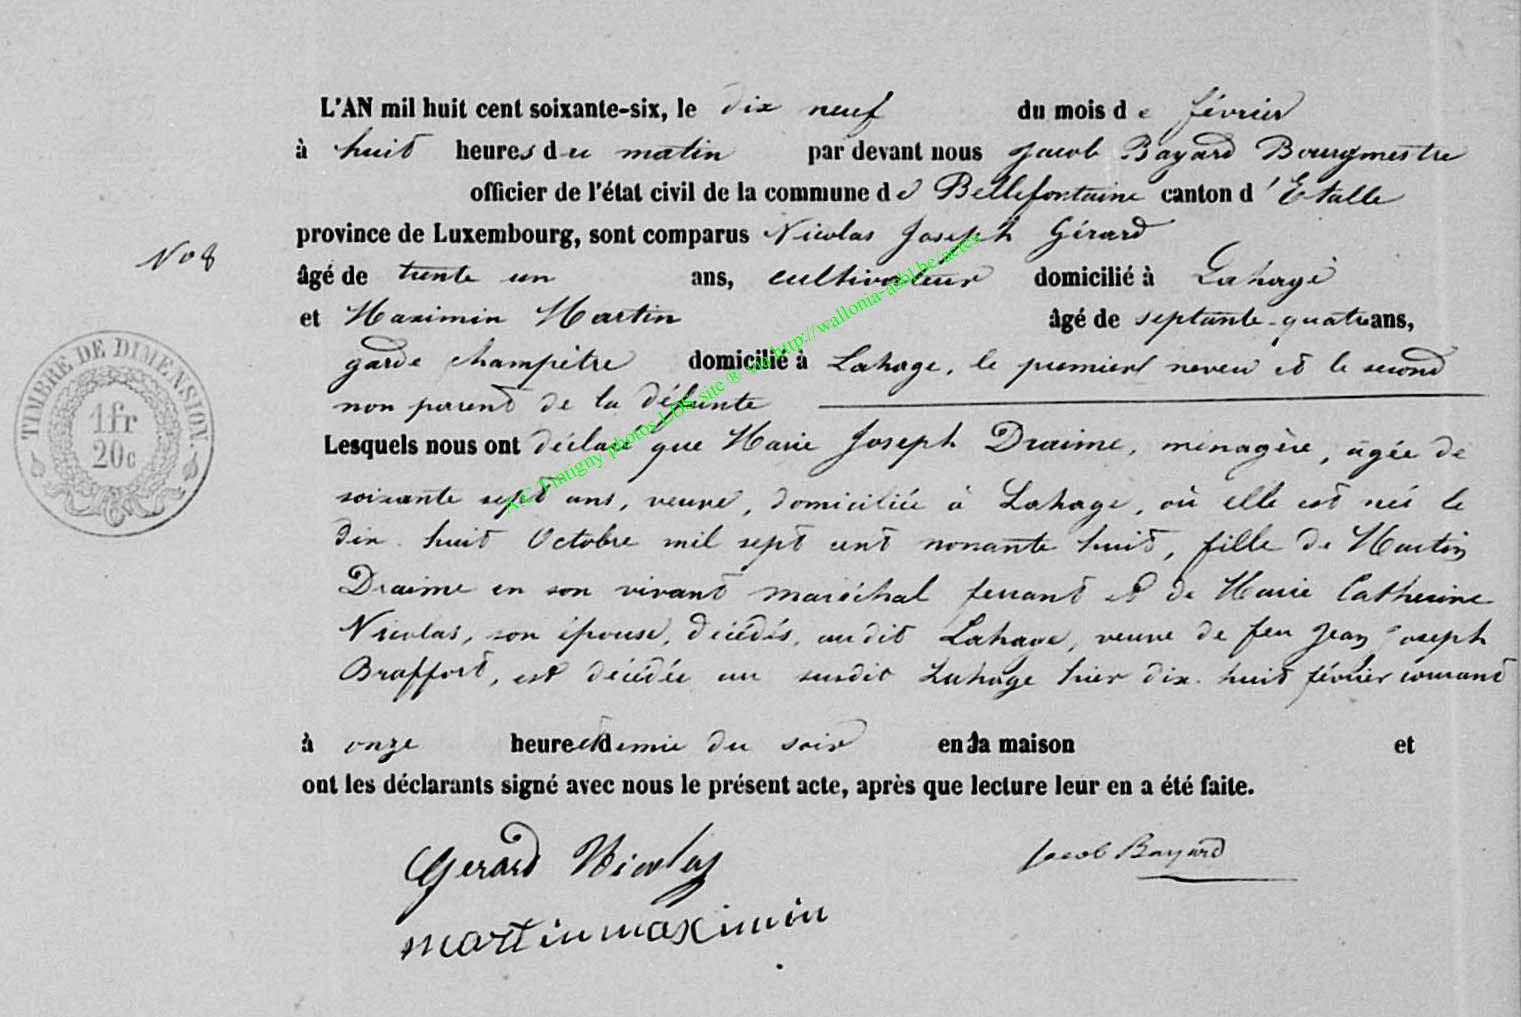 L'AN mil huit cent soixante-six, le dix neuf du mois de février
à huit heures du matin par devant nous Jacob Bayard Bourgmestre
officier de l'état civil de la commune de Bellefontaine canton d'Etalle
province de Luxembourg, sont comparus Nicolas Joseph Gérard
No 8
âgé de trente un ans, cultivateur domicilié à Lahage
et Maximin Martin âgé de septante-quatre ans,
garde champêtre domicilié à Lahage, le premier neveu et le second
non parent de la défunte
Lesquels nous ont déclaré que Marie Joseph Draime, ménagère, agée de
soixante sept ans, veuve, domiciliée à Lahage, où elle est née le
dix-huit Octobre mil sept cent nonante huit, fille de Martin
Draime en son vivant maréchal ferrant et de Marie Catherine
Nicolas, son épouse, décédés, audit Lahage, veuve de feu Jean Joseph
Braffort, est décédée au susdit Lahage hier dix-huit février courant
à onze heure et demie du soir en sa maison et
ont les déclarants signé avec nous le présent acte, après que lecture leur en a été faite.
Gerard Nicolas
Jacob Bayard
martin maximin
TIMBRE DE DIMENSION.
1fr
20c
A.C.Tintigny photos LDS site ® via http://wallonia-asbl.be/actes